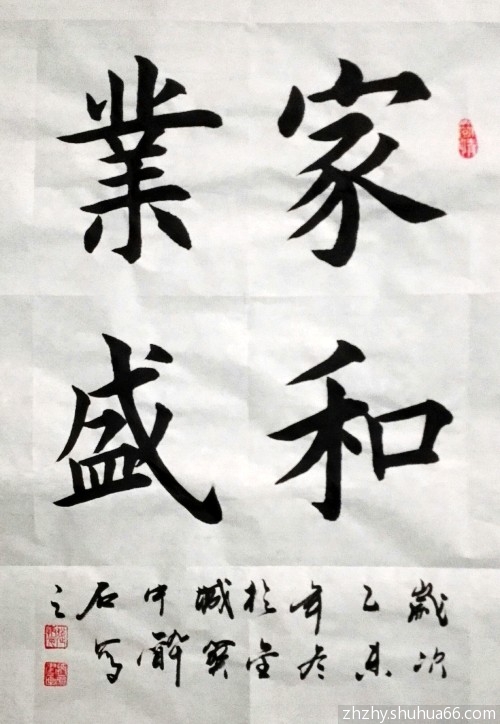 家和
業盛
歲次
乙未
年冬
於
中醉
石寫
之
zhzhy.shuhua66.com